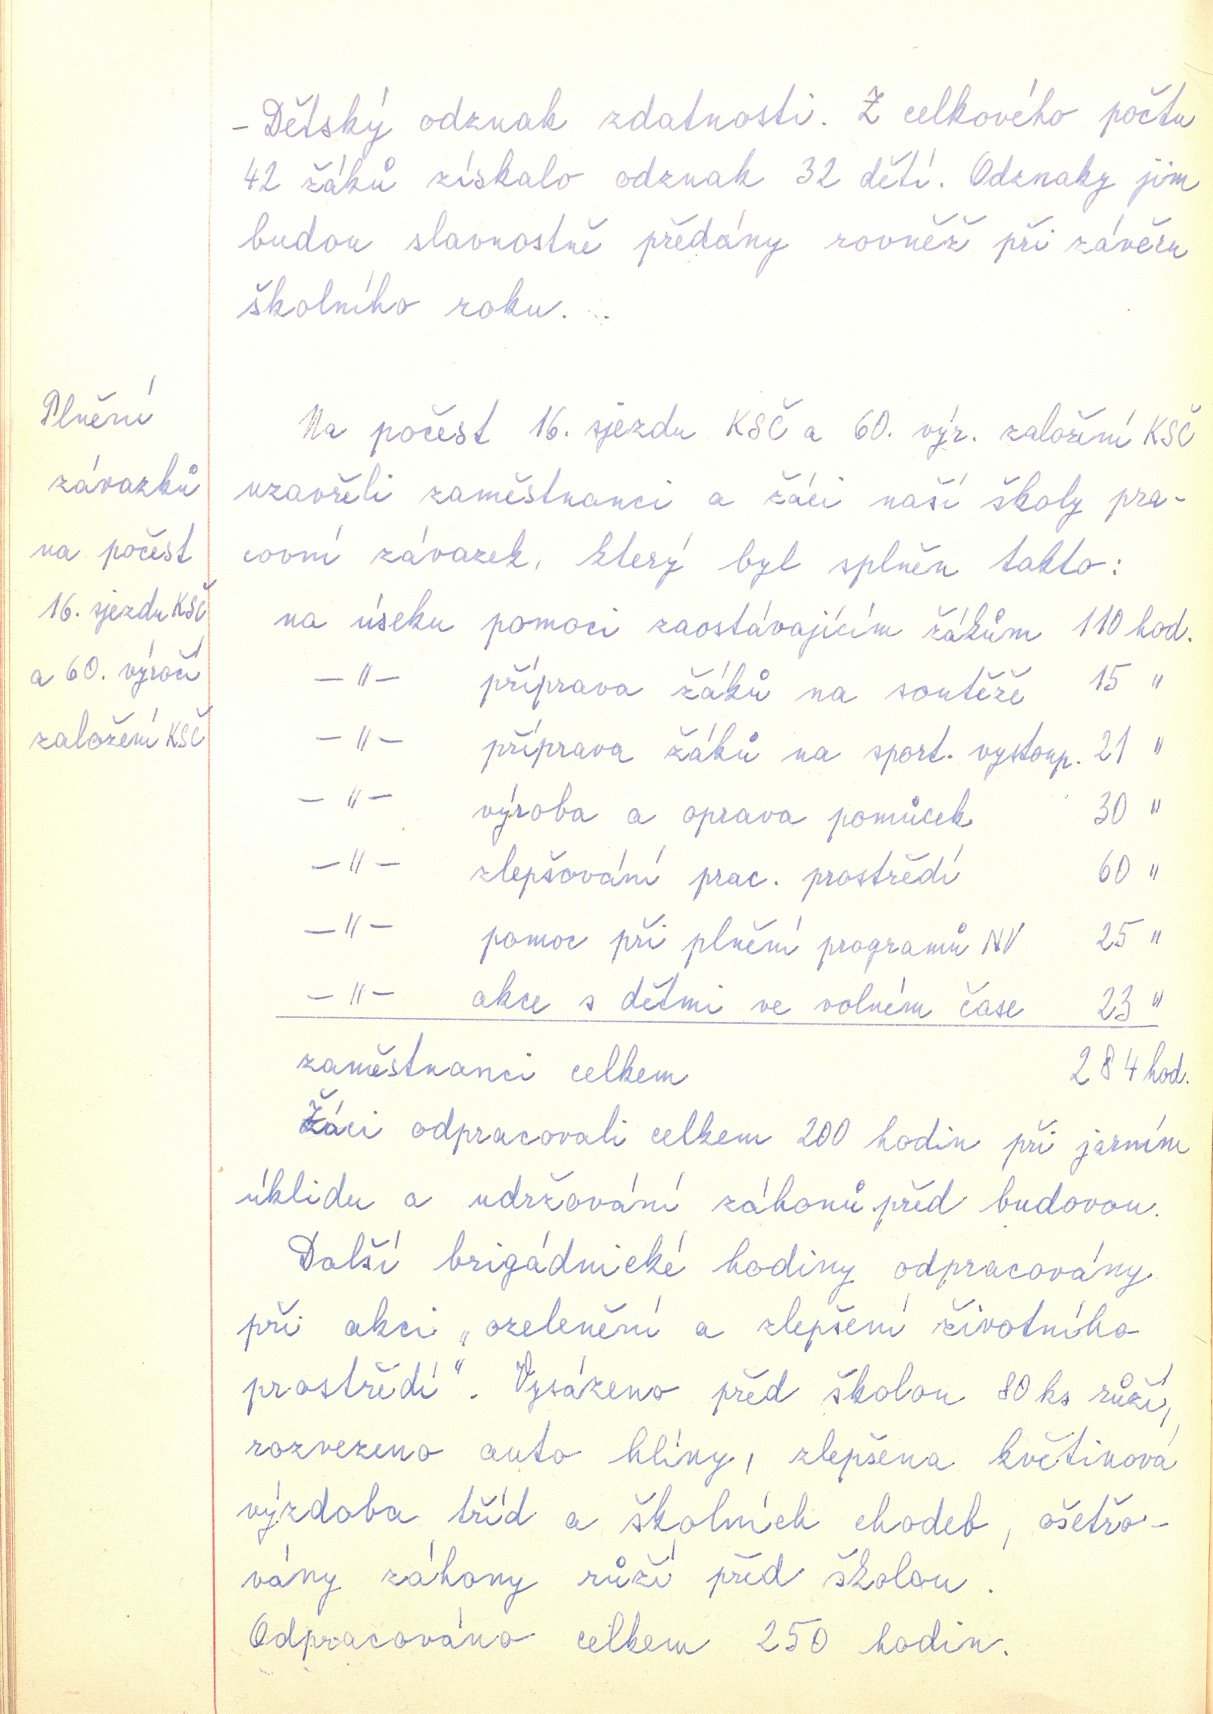 - Dětský odznak zdatnosti. Z celkového počtu
42 žáků získalo odznak 32 dětí. Odznaky jim
budou slavnostně předány rovněž při závěru
školního roku.
Plnění
závazků
na počest
16. sjezdu KSČ
a 60. výročí
založení KSČ
Na počest 16. sjezdu KSČ a 60. výr. založení KSČ
uzavřeli zaměstnanci a žáci naší školy pra-
covní závazek, který byl splněn takto:
na úseku pomoci zaostávajícím žákům 110 hod.
— " — příprava žáků na soutěže 15 "
— " — příprava žáků na sport. vystoup. 21 "
— " — výroba a oprava pomůcek 30 "
— " — zlepšování prac. prostředí 60 "
— " — pomoc při plnění programů NV 25 "
— " — akce s dětmi ve volném čase 23 "
zaměstnanci celkem 284 hod.
Žáci odpracovali celkem 200 hodin při jarním
úklidu a udržování záhonů před budovou.
Další brigádnické hodiny odpracovány
při akci „ozelenění a zlepšení životního
prostředí". Vysázeno před školou 80 ks růží,
rozvezeno auto hlíny, zlepšena květinová
výzdoba tříd a školních chodeb, ošetřo-
vány záhony růží před školou.
Odpracováno celkem 250 hodin.